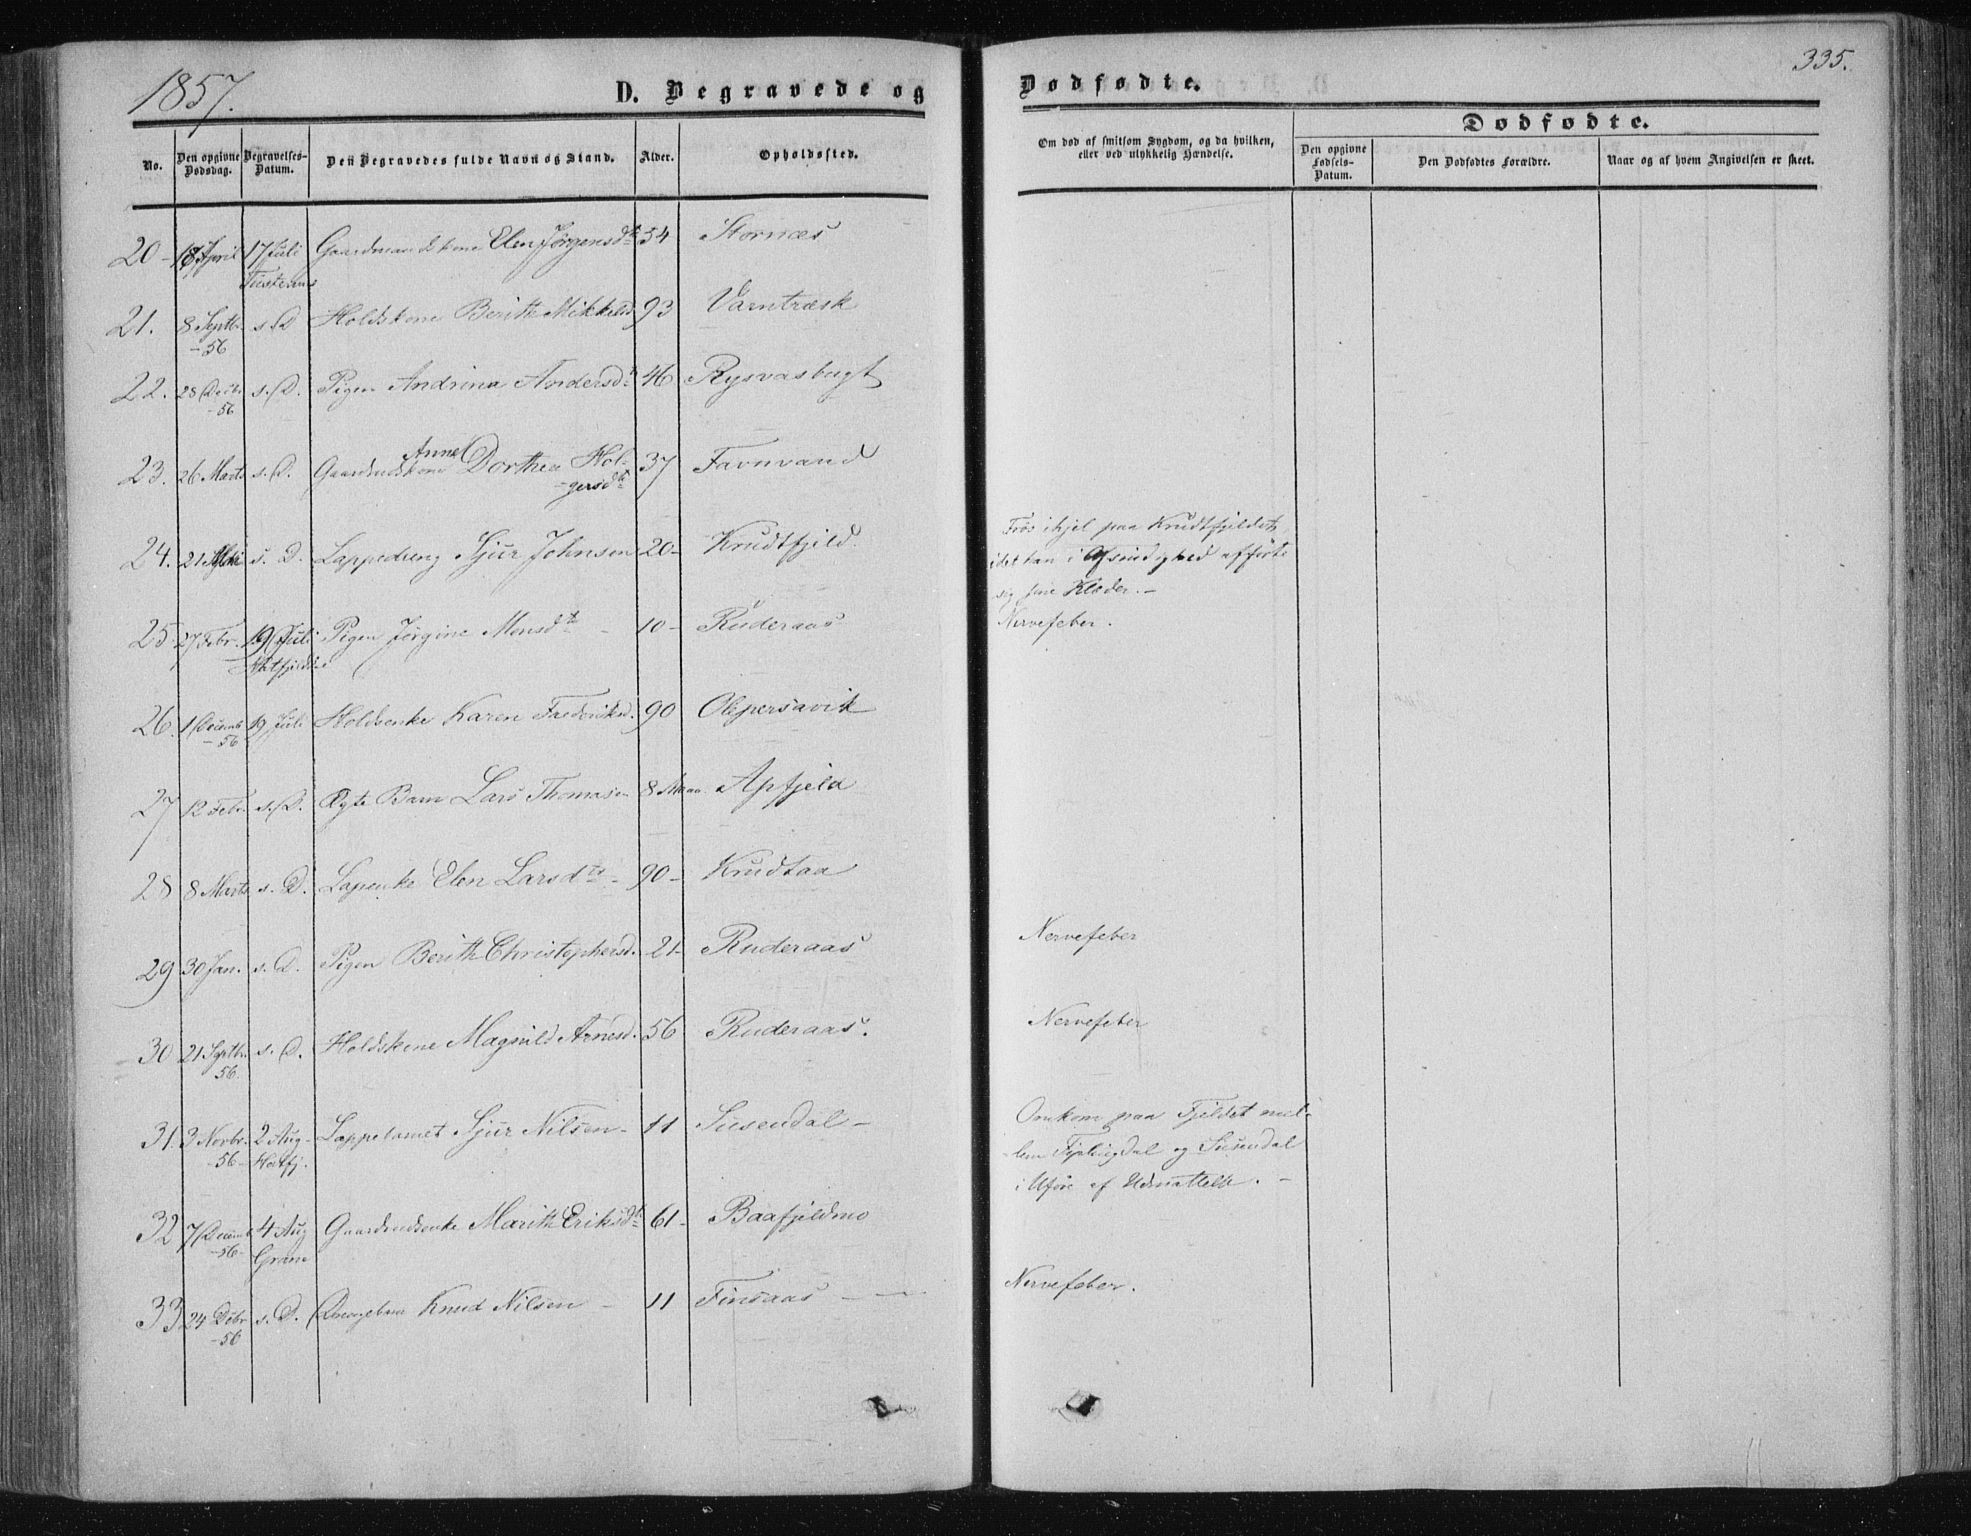 1857.
D. Begravede og
Dødfødte.
335.
No.
Den opgivne Dødsdag.
Begravelses-Datum.
Den Begravedes fulde Navn og Stand.
Alder.
Opholdssted.
Om død af smitsom Sygdom, og da hvilken, eller ved ulykkelig Hændelse.
Dødfødte.
Den opgivne Fødsels-Datum.
Den Dødfødtes Forældre.
Naar og af hvem Angivelsen er skeet.
20 - 18 April 17 Juli Gaardmandskone Elen Jørgensdtr 54 Stornæs
21. 8 Septbr s. D Holdskone Berith Mikkelsd. 93 Varntræsk
-56
22. 28 Decbr s. D. Pigen Andrina Andersdtr 46 Rysvasbugt
-56
23. 26 Marts s. D. Gaardmdskone Anne Dorthea Hol- 37 Favnvand
-gersdtr
24. 21 s. D. Lappedreng Sjur Johnsen 20 - Krudtfjeld
Frøs ihjel paa Krudtfjeldet,
idet han i Afsindighed afførte
sig sine Klæder. -
25 27 Febr. 19 Juli Pigen Jørgine Monsdtr - 10 - Ruderaas Nervefeber.
26. 1 Decemb 19 Juli Holdsenke Karen Frederiksd. 90 Olepersavik
-56
27 12 Febr. s. D. Ægte Barn Lars Thomasen 8 Maa Apfjeld
28 8 Marts s. D. Lapenke Elen Larsdtr - 90 - Krudtaa
29 30 Jan. s. D. Pigen Berith Christophersd. 21 - Ruderaas Nervefeber
30 21 Septbr. s. D. Holdskone Magnild Arnesd. 56 Ruderaas. Nervefeber
56.
31. 3 Novbr. 2 Aug. Lappelamet Sjur Nilsen - 11 Susendal -
-56- Hatfj.
Omkom paa Fjeldet mel-
lem Fiplingdal og Susendal
i Uføre af Udmattelse. -
32 7 Decemb 4 Aug Gaardmdsenke Marith Eriksdtr 61 - Baafjeldmo
-56- Grane
33 24 Dcbr s. D. Knud Nilsen - 11 Finsaas - Nervefeber.
-56